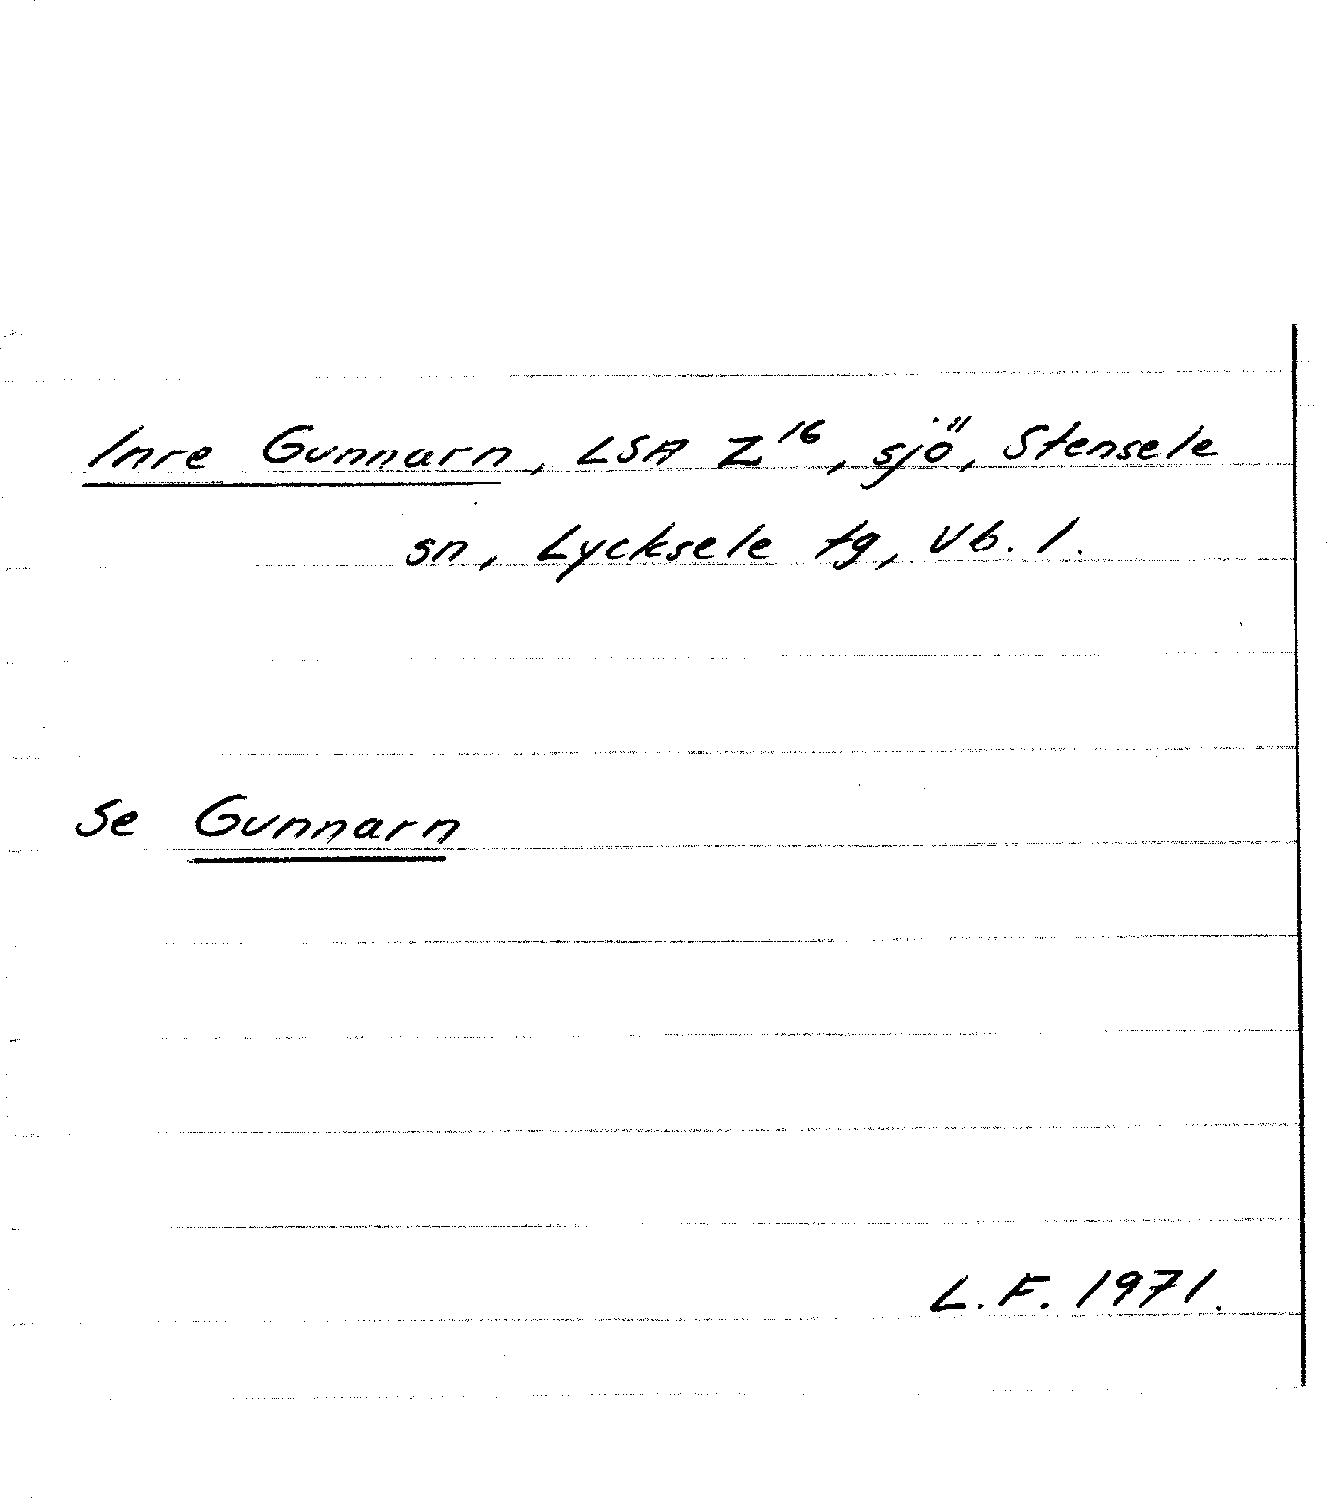 Inre Gunnarn, LSA Z¹⁶, sjö, Stensele
sn, Lycksele tg, Vb. l.
Se Gunnarn
L.F. 1971.